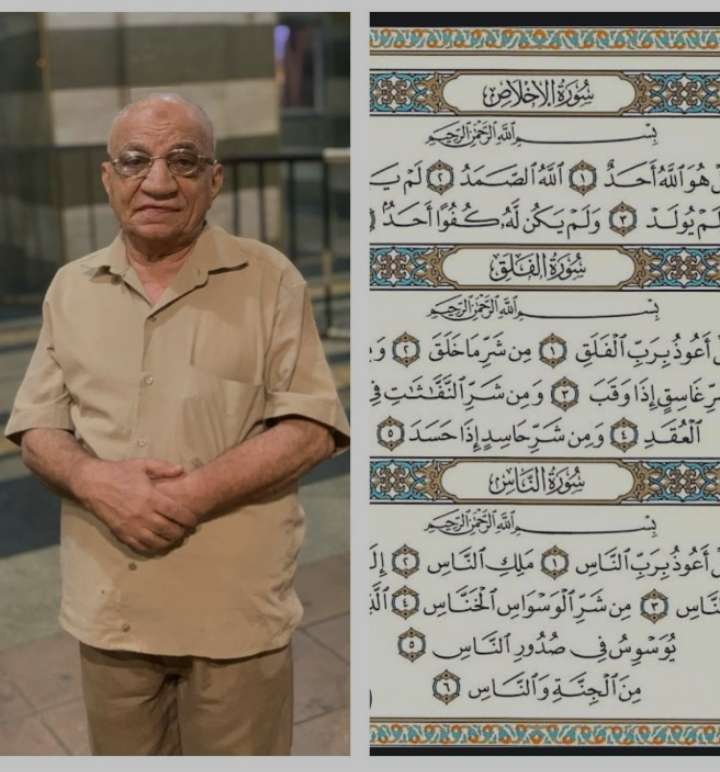 سُورَةُ الإِخْلَاصِ
بِسْمِ اللَّهِ الرَّحْمَٰنِ الرَّحِيمِ
هُوَ اللَّهُ أَحَدٌ ١ اللَّهُ الصَّمَدُ ٢ لَمْ يَـ
يُولَدْ ٣ وَلَمْ يَكُن لَّهُۥ كُفُوًا أَحَدٌۢ
سُورَةُ الفَلَقِ
بِسْمِ اللَّهِ الرَّحْمَٰنِ الرَّحِيمِ
أَعُوذُ بِرَبِّ الْفَلَقِ ١ مِن شَرِّ مَا خَلَقَ ٢
غَاسِقٍ إِذَا وَقَبَ ٣ وَمِن شَرِّ النَّفَّٰثَٰتِ فِي
الْعُقَدِ ٤ وَمِن شَرِّ حَاسِدٍ إِذَا حَسَدَ ٥
سُورَةُ النَّاسِ
بِسْمِ اللَّهِ الرَّحْمَٰنِ الرَّحِيمِ
أَعُوذُ بِرَبِّ النَّاسِ ١ مَلِكِ النَّاسِ ٢ إِلَـ
النَّاسِ ٣ مِن شَرِّ الْوَسْوَاسِ الْخَنَّاسِ ٤
يُوَسْوِسُ فِي صُدُورِ النَّاسِ ٥
مِنَ الْجِنَّةِ وَالنَّاسِ ٦